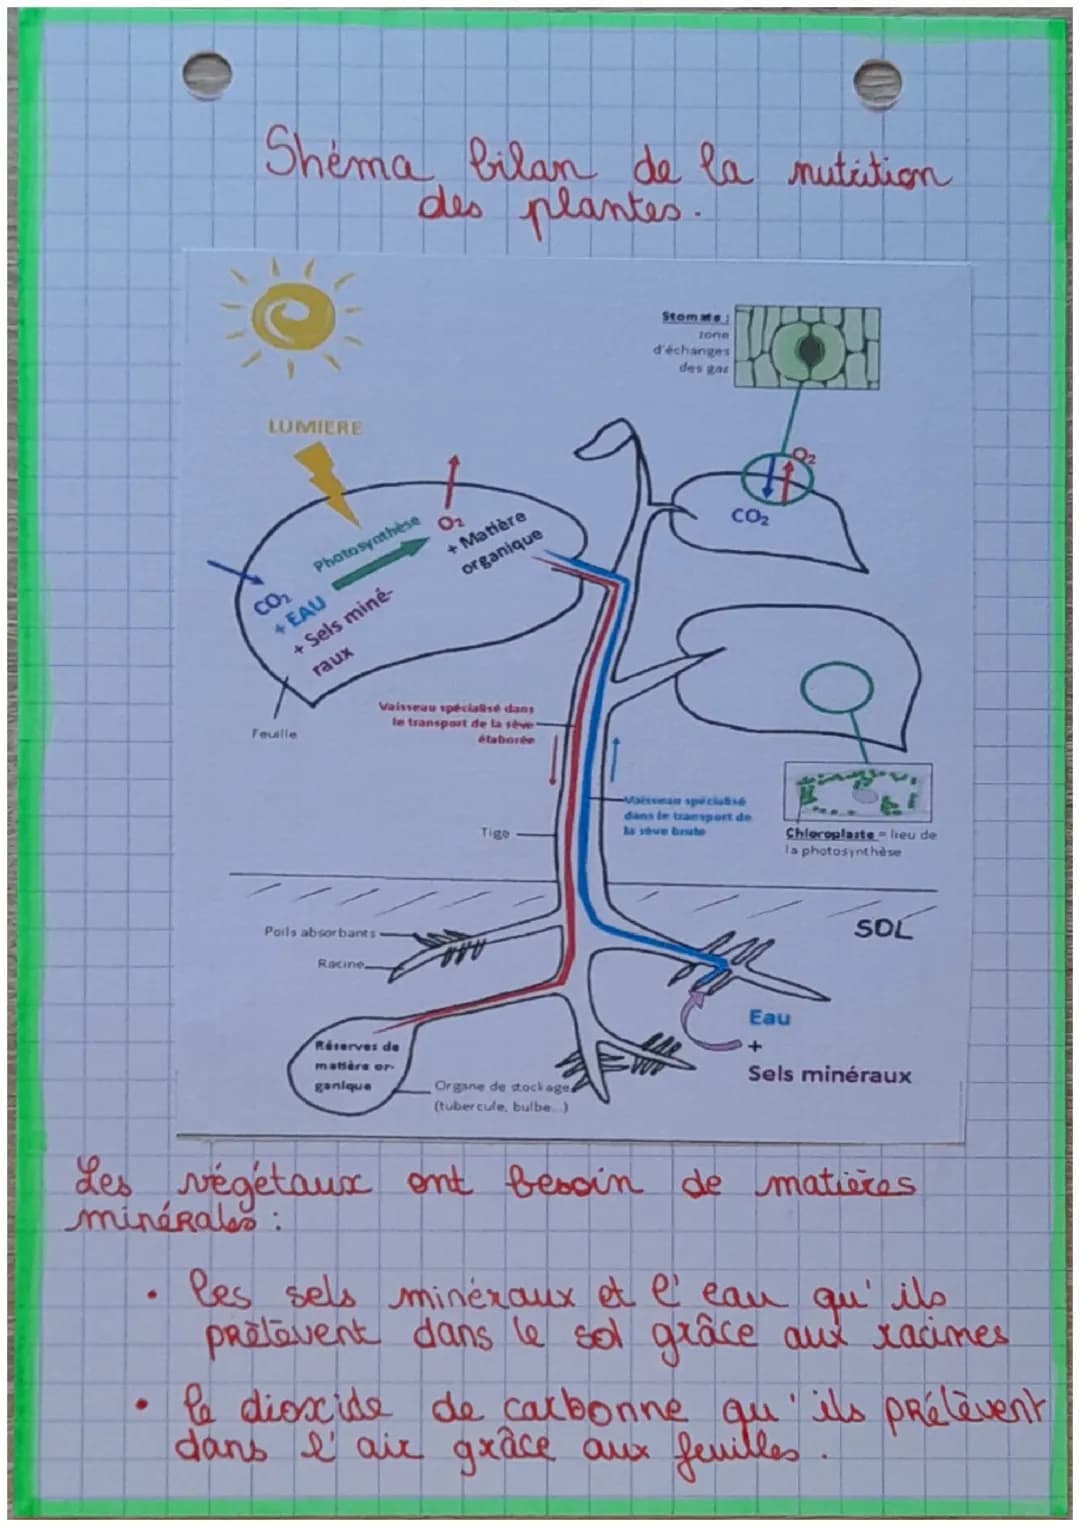 Shéma bilan de la nutrition
des plantes.
Stomate :
zone
d'échanges
des gaz
LUMIERE
O₂
CO₂
Photosynthèse
O₂
+ Matière
organique
CO₂
+ EAU
+ Sels miné-
raux
Feuille
Vaisseau spécialisé dans
le transport de la sève
élaborée
Vaisseau spécialisé
dans le transport de
la sève brute
Tige
Chloroplaste = lieu de
la photosynthèse
SOL
Poils absorbants
Racine
Eau
+
Sels minéraux
Réserves de
matière or-
ganique
Organe de stockage
(tubercule, bulbe...)
Les végétaux ont besoin de matières
minérales :
• les sels minéraux et l'eau qu'ils
prélèvent dans le sol grâce aux racines
• le dioxide de carbonne qu'ils prélèvent
dans l'air grâce aux feuilles.